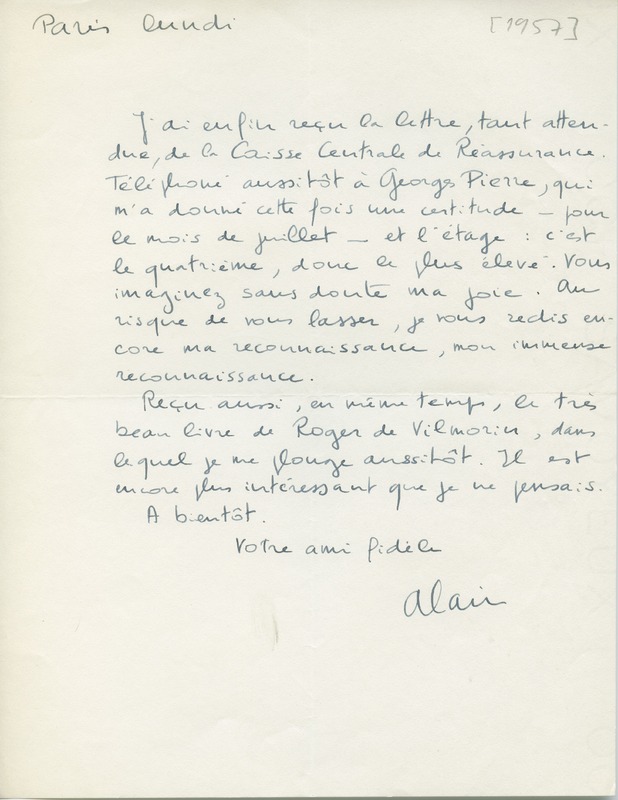 Paris lundi [1957]
J'ai enfin reçu la lettre, tant atten-
due, de la Caisse Centrale de Réassurance.
Téléphoné aussitôt à Georges Pierre, qui
m'a donné cette fois une certitude — pour
le mois de juillet — et l'étage : c'est
le quatrième, donc le plus élevé. Vous
imaginez sans doute ma joie. Au
risque de vous lasser, je vous redis en-
core ma reconnaissance, mon immense
reconnaissance.
Reçu aussi, en même temps, le très
beau livre de Roger de Vilmorin, dans
lequel je me plonge aussitôt. Il est
encore plus intéressant que je ne pensais.
A bientôt.
Votre ami fidèle
Alain